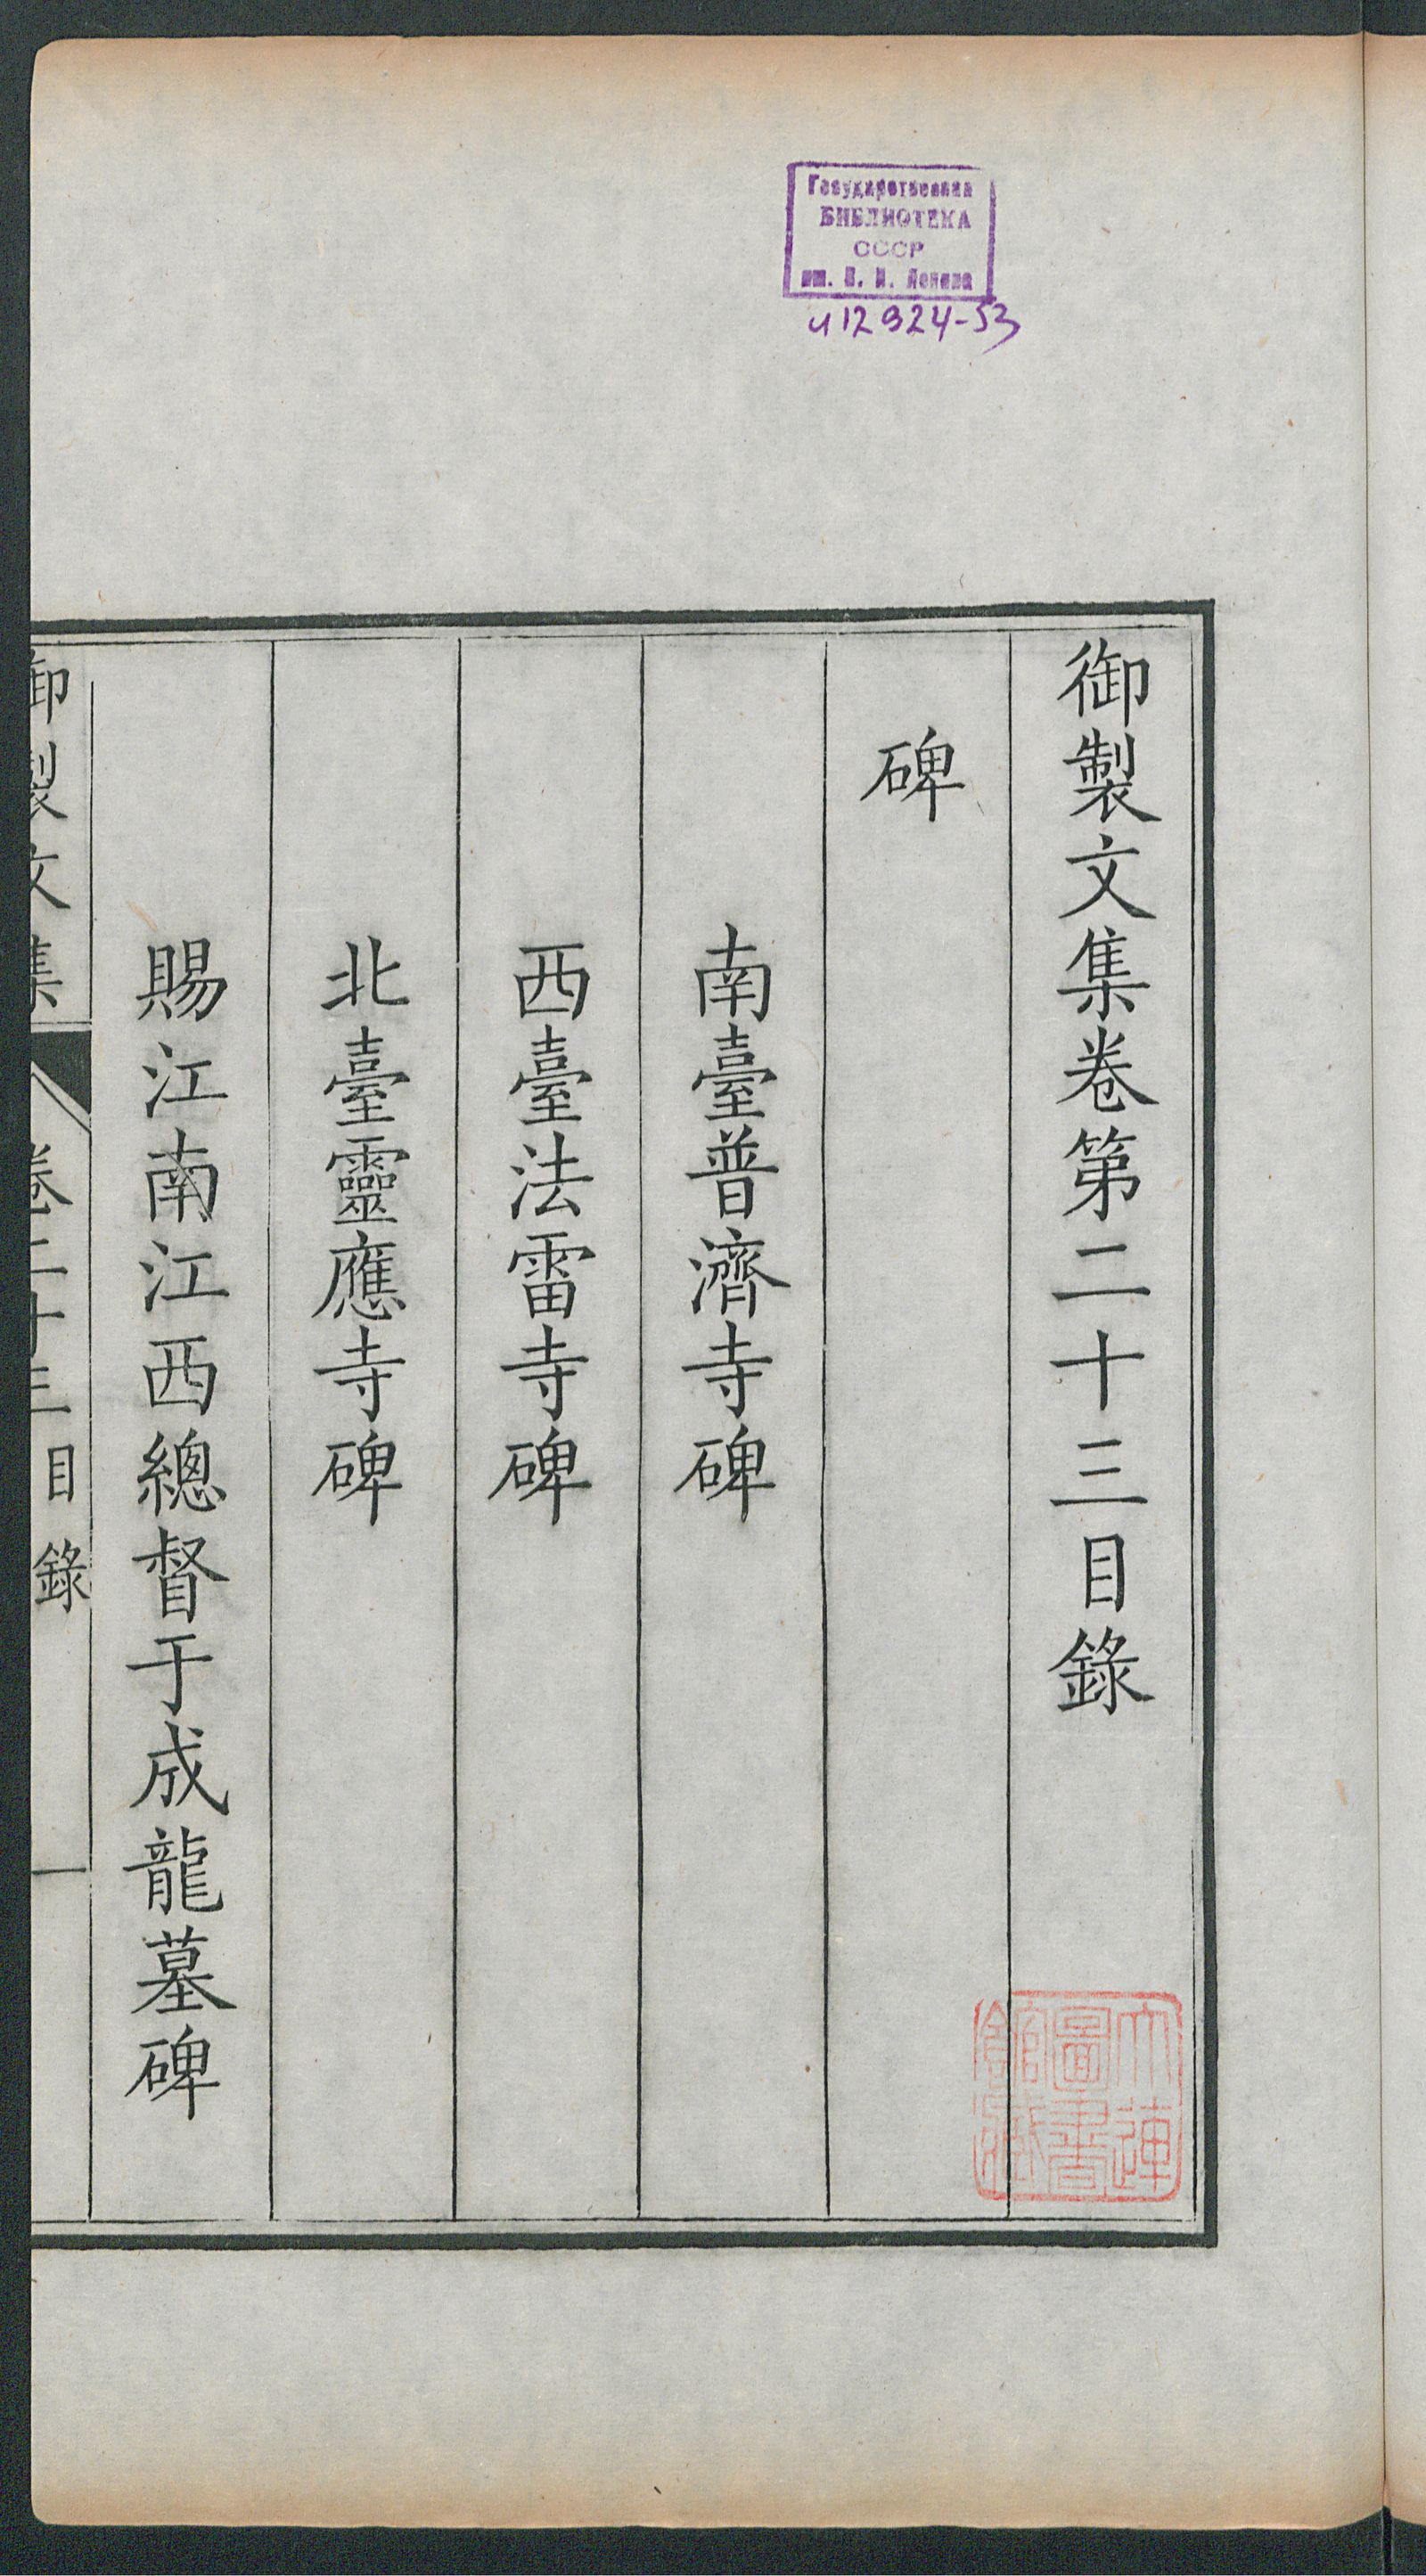 Государственная
БИБЛИОТЕКА
СССР
им. В. И. Ленина
и 12924-53
御製文集卷第二十三目錄
碑
南臺普濟寺碑
西臺法雷寺碑
北臺靈應寺碑
賜江南江西總督于成龍墓碑
御製文集 卷二十三目錄 一
大連
圖書
館藏